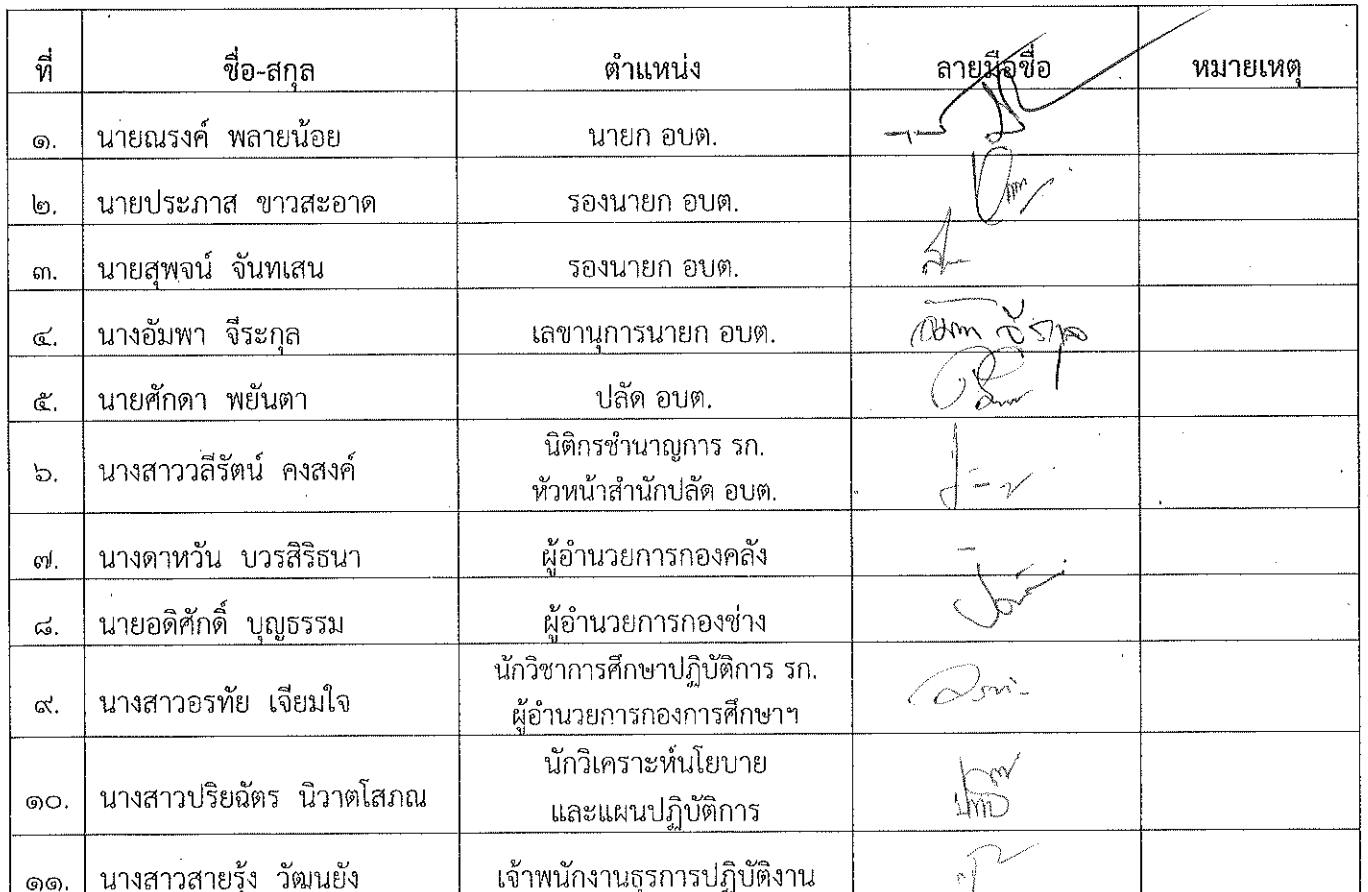 ที่ ชื่อ-สกุล ตำแหน่ง ลายมือชื่อ หมายเหตุ
๑. นายณรงค์ พลายน้อย นายก อบต.
๒. นายประภาส ขาวสะอาด รองนายก อบต.
๓. นายสุพจน์ จันทเสน รองนายก อบต.
๔. นางอัมพา จีระกุล เลขานุการนายก อบต.
๕. นายศักดา พยันตา ปลัด อบต.
๖. นางสาววลีรัตน์ คงสงค์ นิติกรชำนาญการ รก.
หัวหน้าสำนักปลัด อบต.
๗. นางดาหวัน บวรสิริธนา ผู้อำนวยการกองคลัง
๘. นายอดิศักดิ์ บุญธรรม ผู้อำนวยการกองช่าง
๙. นางสาวอรทัย เจียมใจ นักวิชาการศึกษาปฏิบัติการ รก.
ผู้อำนวยการกองการศึกษาฯ
๑๐. นางสาวปริยฉัตร นิวาตโสภณ นักวิเคราะห์นโยบาย
และแผนปฏิบัติการ
๑๑. นางสาวสายรุ้ง วัฒนยัง เจ้าพนักงานธุรการปฏิบัติงาน